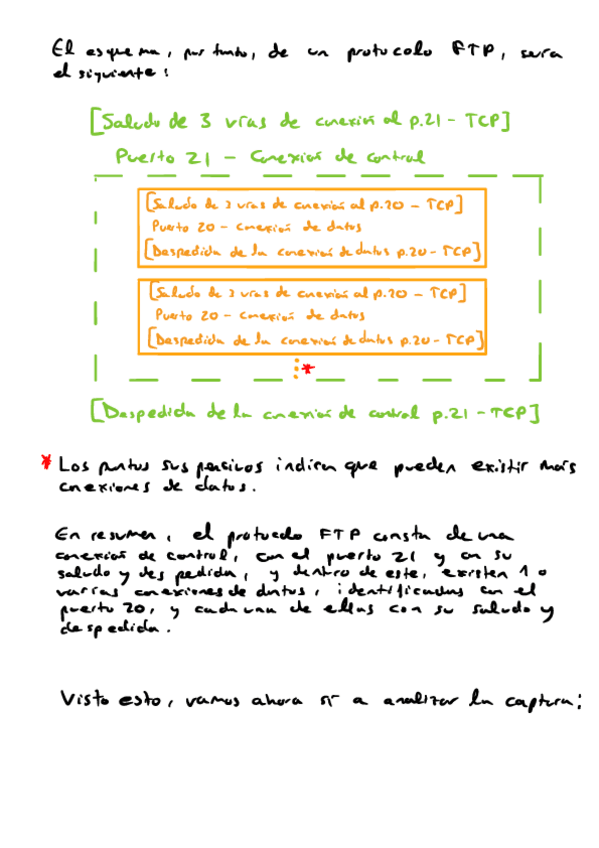 El esquema, por tanto, de un protocolo FTP, sería
el siguiente:
[Saludo de 3 vías de conexión al p.21 - TCP]
Puerto 21 - Conexión de control
[Saludo de 3 vías de conexión al p.20 - TCP]
Puerto 20 - conexión de datos
[Despedida de la conexión de datos p.20 - TCP]
[Saludo de 3 vías de conexión al p.20 - TCP]
Puerto 20 - conexión de datos
[Despedida de la conexión de datos p.20 - TCP]
*
[Despedida de la conexión de control p.21 - TCP]
* Los puntos suspensivos indican que pueden existir más
conexiones de datos.
En resumen, el protocolo FTP consta de una
conexión de control, con el puerto 21 y con su
saludo y despedida, y dentro de este, existen 1 o
varias conexiones de datos, identificadas con el
puerto 20, y cada una de ellas con su saludo y
despedida.
Visto esto, vamos ahora sí a analizar la captura: